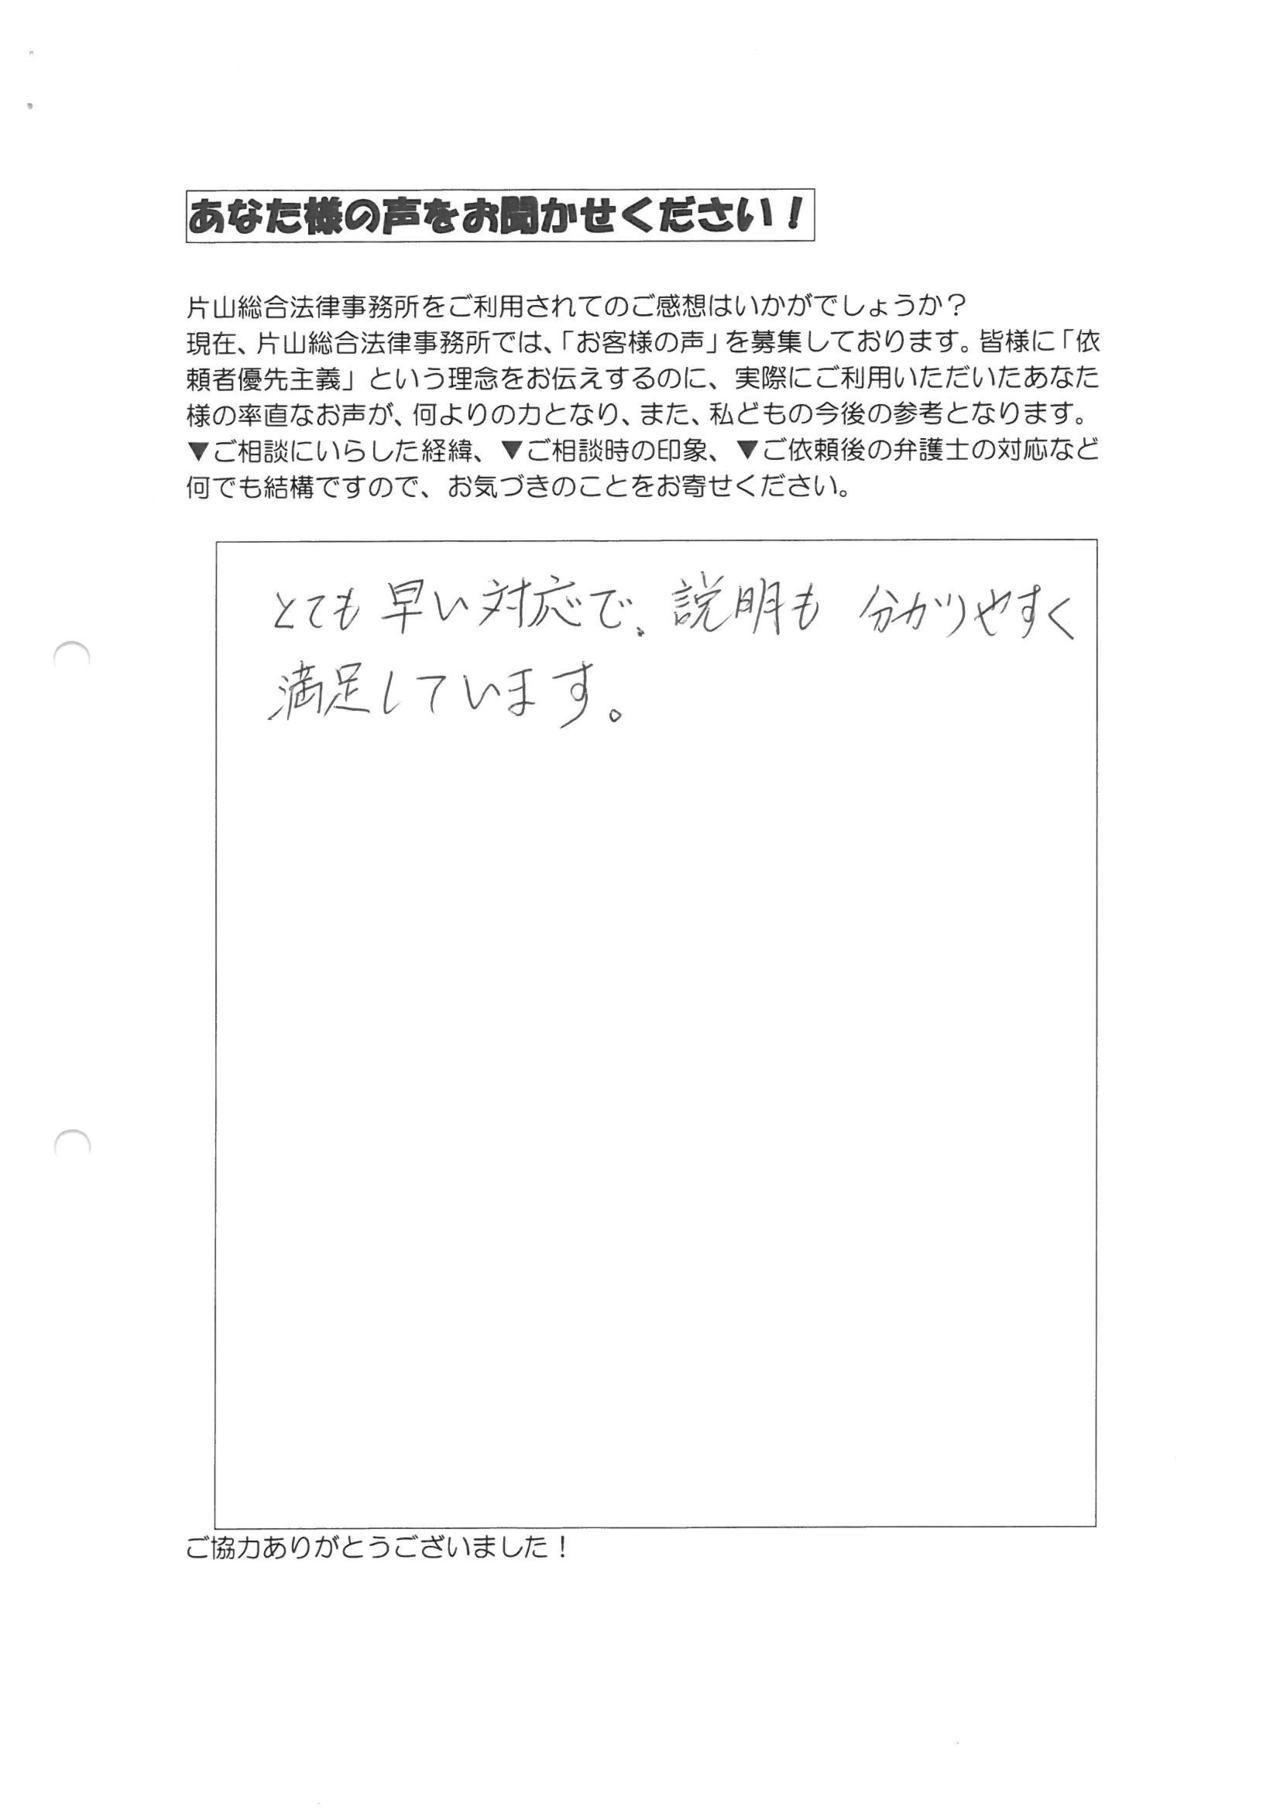 あなた様の声をお聞かせください！
片山総合法律事務所をご利用されてのご感想はいかがでしょうか？
現在、片山総合法律事務所では、「お客様の声」を募集しております。皆様に「依
頼者優先主義」という理念をお伝えするのに、実際にご利用いただいたあなた
様の率直なお声が、何よりの力となり、また、私どもの今後の参考となります。
▼ご相談にいらした経緯、▼ご相談時の印象、▼ご依頼後の弁護士の対応など
何でも結構ですので、お気づきのことをお寄せください。
とても早い対応で、説明も 分かりやすく
満足しています。
ご協力ありがとうございました！